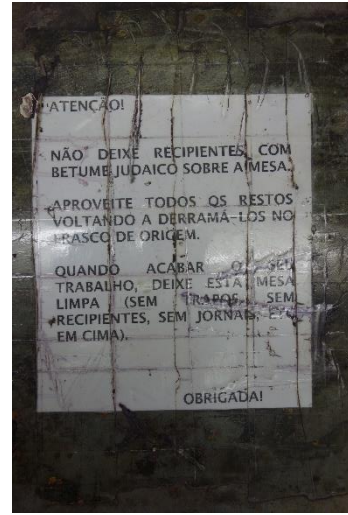 ATENÇÃO!
NÃO DEIXE RECIPIENTES COM
BETUME JUDAICO SOBRE A MESA.
APROVEITE TODOS OS RESTOS
VOLTANDO A DERRAMÁ-LOS NO
FRASCO DE ORIGEM.
QUANDO ACABAR O SEU
TRABALHO, DEIXE ESTA MESA
LIMPA (SEM TRAPOS, SEM
RECIPIENTES, SEM JORNAIS, ETC,
EM CIMA).
OBRIGADA!